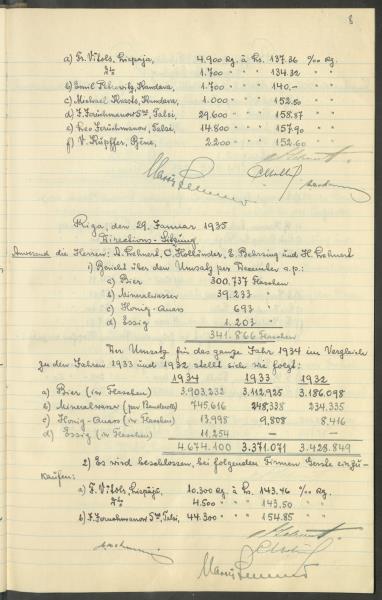 8
a) Fr. Vitols, Liepaja, 4.900 kg. à Ls. 137.36 %00 kg.
dto 1.700 " " " 134.32 " "
b) Emil Kandava, 1.700 " " " 140.- " "
c) Michael Knasts, Kandava, 1.000 " " " 152.50 " "
d) F. Foruchmanow Sne, Talsi, 29.600 " " " 158.87 " "
e) Leo Foruchmanow, Talsi, 14.800 " " " 157.90 " "
f) V. Küpffer, Pļene, 2.200 " " " 152.60 " "
Riga, den 29. Januar 1935
Directions-Sitzung
Anwesend die Herren: A. Lehnert, C. Holländer, E. Behrsing und H. Lehnert
1) Bericht über den Umsatz per December a.p.:
a) Bier 300.737 Flaschen
b) Mineralwasser 39.233 "
c) Honig-Quass 693 "
d) Essig 1.203 "
341.866 Flaschen
Der Umsatz für das ganze Jahr 1934 im Vergleich
zu den Jahren 1933 und 1932 stellt sich wie folgt:
1934 1933 1932
a) Bier (in Flaschen) 3.903.232 3.112.925 3.186.098
b) Mineralwasser 745.616 248,338 234,335
c) Honig-Quass (in Flaschen) 13,998 9,808 8,416
d) Essig (in Flaschen) 11,254 — —
4.674.100 3.371.071 3.428.849
2) Es wird beschlossen, bei folgenden Firmen Gerste einzu-
kaufen:
a) F. Vitols, Liepaja, 10.300 kg. à Ls. 143.46 %00 kg.
dto 4.500 " " " 143.50 " "
b) F. Foruchmanow Sne, Talsi, 44.300 " " " 154.85 " "